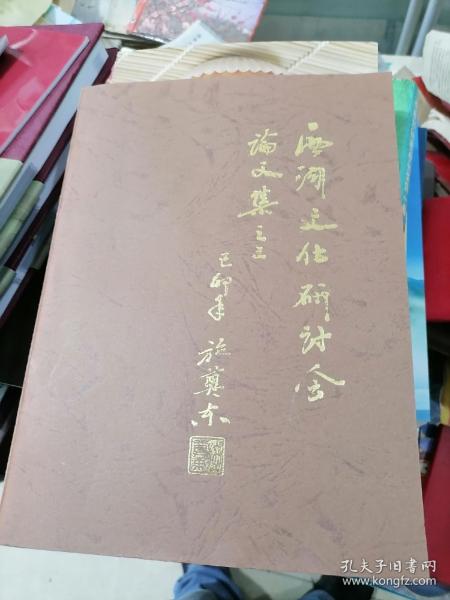 西湖文化研討会
論文集之三
己卯年 施奠东
孔夫子旧书网
www.kongfz.com